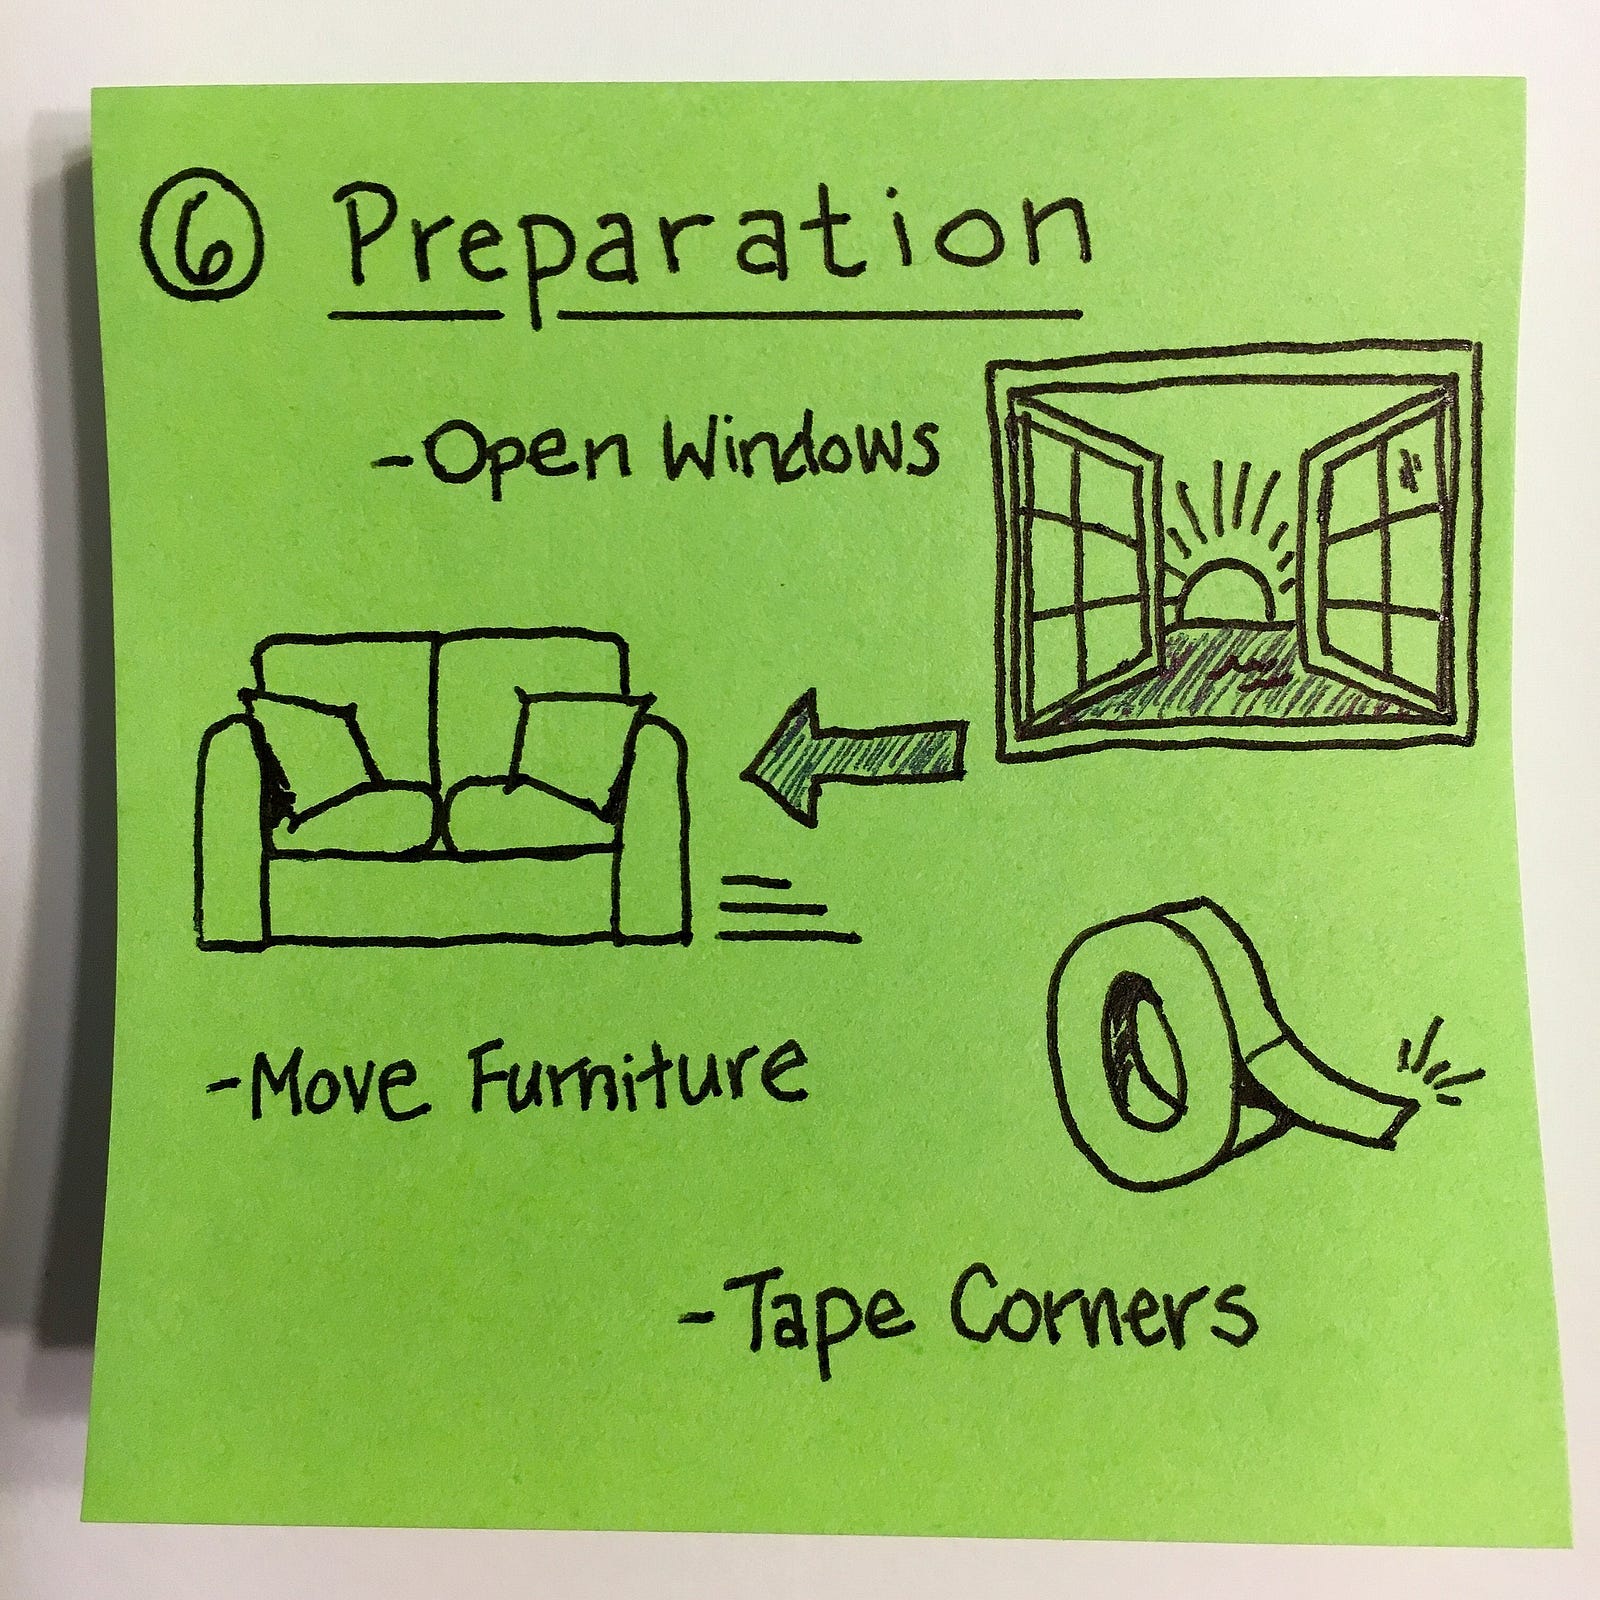 6 Preparation
-Open Windows
-Move Furniture
-Tape Corners